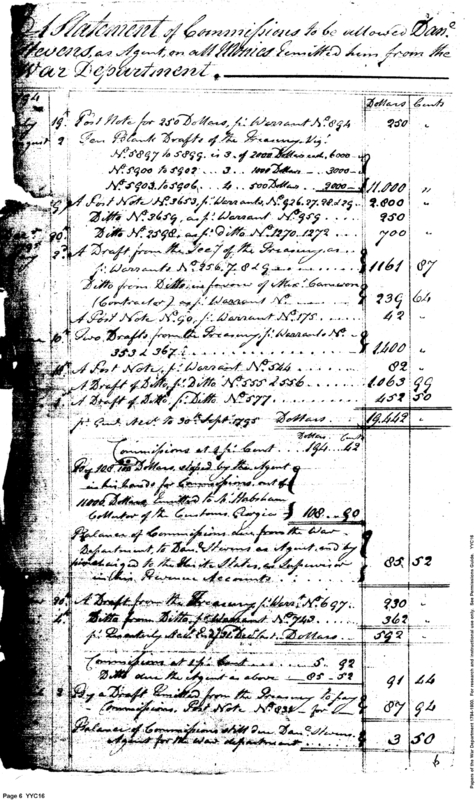 A Statement of Commissions to be allowed Danl.
Stevens, as Agent, on all Monies Remitted him from the
War Department.
Dollars Cents
19th Post Note for 250 Dollars, pr. Warrant No. 894 250 "
2 Ten Blank Drafts of the Treasury. Viz.
No. 5897 to 5899. is 3. of 2000 Dollars each, 6000
No. 5900 to 5902 ... 3 ... 1000 Dollars 3000
No. 5903 to 5906 ... 4 .. 500 Dollars 2000 11,000 "
A Post Note No. 3653, pr. Warrants, No. 926.27.28 & 29 2.800 "
Ditto No. 3659, as pr. Warrant No. 959 250
Ditto No. 2598. as pr. ditto No. 1270.1272 700 "
2d. A Draft from the Secy. of the Treasury, as
pr. Warrants No. 256.7.8 & 9 1161 87
Ditto from Ditto, in favour of Alexr. Cameron
(Contractor) as pr. Warrant No. 239 64
A Post Note No. 90, pr. Warrant No. 175 42 "
10th Two Drafts from the Treasury, pr. Warrants No.
353 & 367 1400 "
A Post Note, pr. Warrant No. 544 82 "
A Draft of Ditto, pr. Ditto No. 555 & 556 1.063 99
A Draft of Ditto, pr. Ditto No. 577 452 50
to 30th Sept. 1795 Dollars 19.442 "
Dollars Cents
Commissions at 1 pr. Cent 194 . 42
By 108.90 Dollars, stoped by the Agent
in his hands for Commissions, out of
11000 Dollars Remitted to
Collector of the Customs, Georgia 108 .. 90
Ballance of Commissions due from the War
Department, to Danl. Stevens as Agent, and by
him charged to the United States, as Supervisor
in his Revenue Accounts 85. 52
A Draft from the Treasury pr. Warrt. No. 697 230 "
Ditto from Ditto, pr. Warrant No. 743 362 "
pr. Quarterly Dollars 592
Commissions at 1 pr. Cent 5 . 92
Ditto due the Agent as above 85 - 52 91 44
By a Draft Remitted from the Treasury to pay
Commissions. Post Note No. for 87 94
Ballance of Commissions still due Danl. Stevens
Agent for the War department 3 50
Page 6 YYC16
Papers of the War Department 1784-1800. For research and instructional use only. See Permissions Guide. YYC16